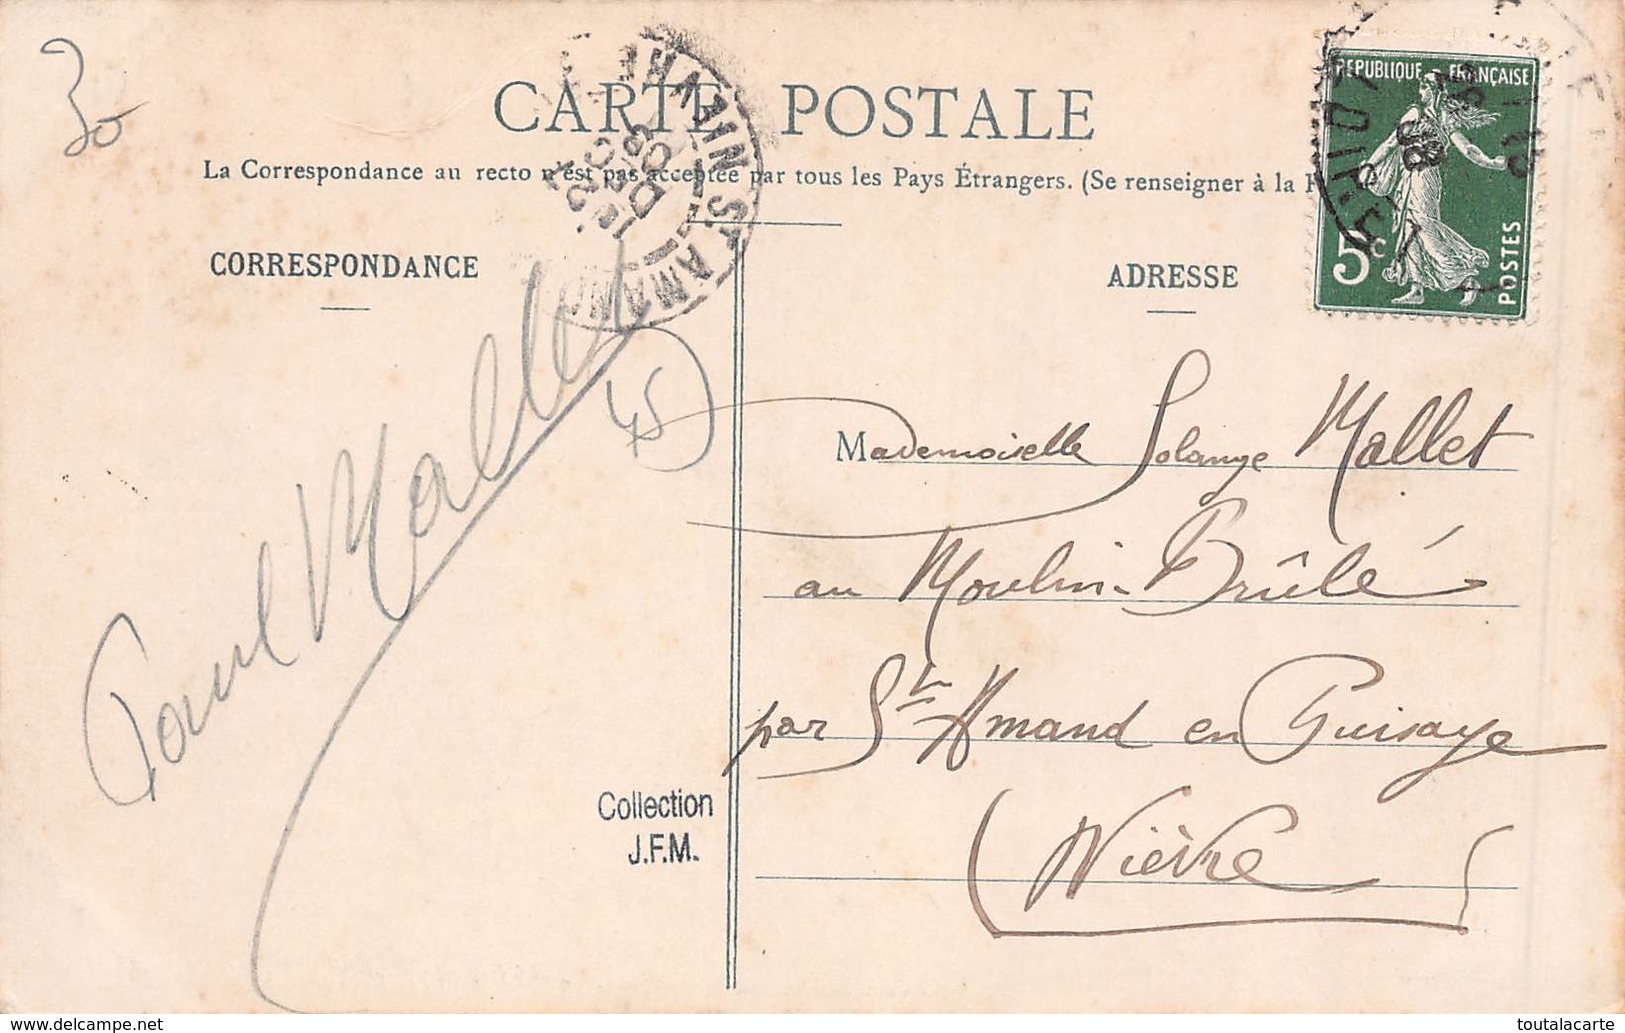 30
CARTE POSTALE
La Correspondance au recto n'est pas acceptée par tous les Pays Étrangers. (Se renseigner à la
CORRESPONDANCE
ADRESSE
REPUBLIQUE FRANÇAISE
5c
POSTES
ST AMAND
DEC
08
45
Paul Mallet
Mademoiselle Solange Mallet
au Moulin-Brûlé
par St Amand en Puisaye
(Nièvre)
Collection
J.F.M.
www.delcampe.net
toutalacarte